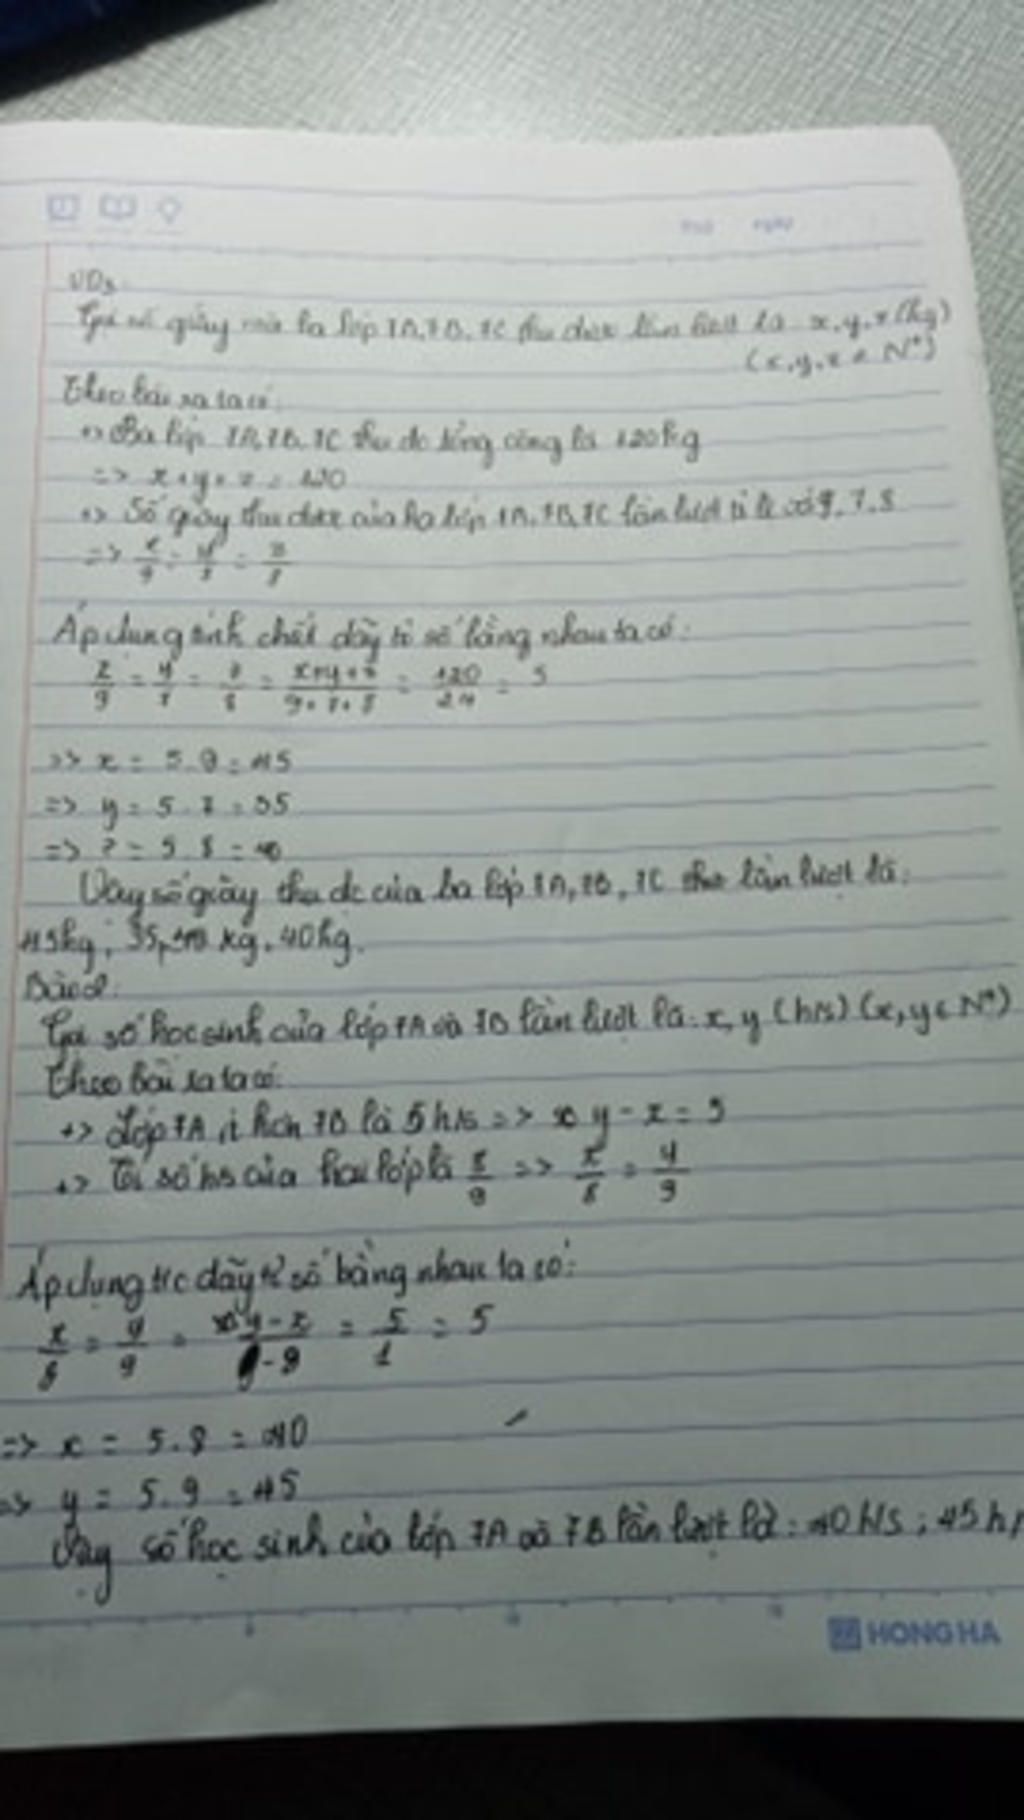 VD3:
Gọi số giấy mà ba lớp 7A, 7B, 7C thu được lần lượt là x, y, z (kg)
(x, y, z ∈ N*)
Theo bài ra ta có:
+> Ba lớp 7A, 7B, 7C thu đc tổng cộng là 120kg
=> x + y + z = 120
+> Số giấy thu được của ba lớp 7A, 7B, 7C lần lượt tỉ lệ với 9, 7, 8
=> x/9 = y/7 = z/8
Áp dụng tính chất dãy tỉ số bằng nhau ta có:
x/9 = y/7 = z/8 = (x+y+z)/(9+7+8) = 120/24 = 5
=> x = 5.9 = 45
=> y = 5.7 = 35
=> z = 5.8 = 40
Vậy số giấy thu đc của ba lớp 7A, 7B, 7C lần lượt là:
45kg; 35 kg, 40kg.
Bài 2:
Gọi số học sinh của lớp 7A và 7B lần lượt là: x, y (h/s) (x, y ∈ N*)
Theo bài ra ta có:
+> Lớp 7A ít hơn 7B là 5 h/s => y - x = 5
+> Tỉ số h/s của hai lớp là 8/9 => x/8 = y/9
Áp dụng t/c dãy tỉ số bằng nhau ta có:
x/8 = y/9 = (y-x)/( -8) = 5/1 = 5
=> x = 5.8 = 40
=> y = 5.9 = 45
Vậy số học sinh của lớp 7A và 7B lần lượt là: 40 h/s; 45 h/
HONG HA